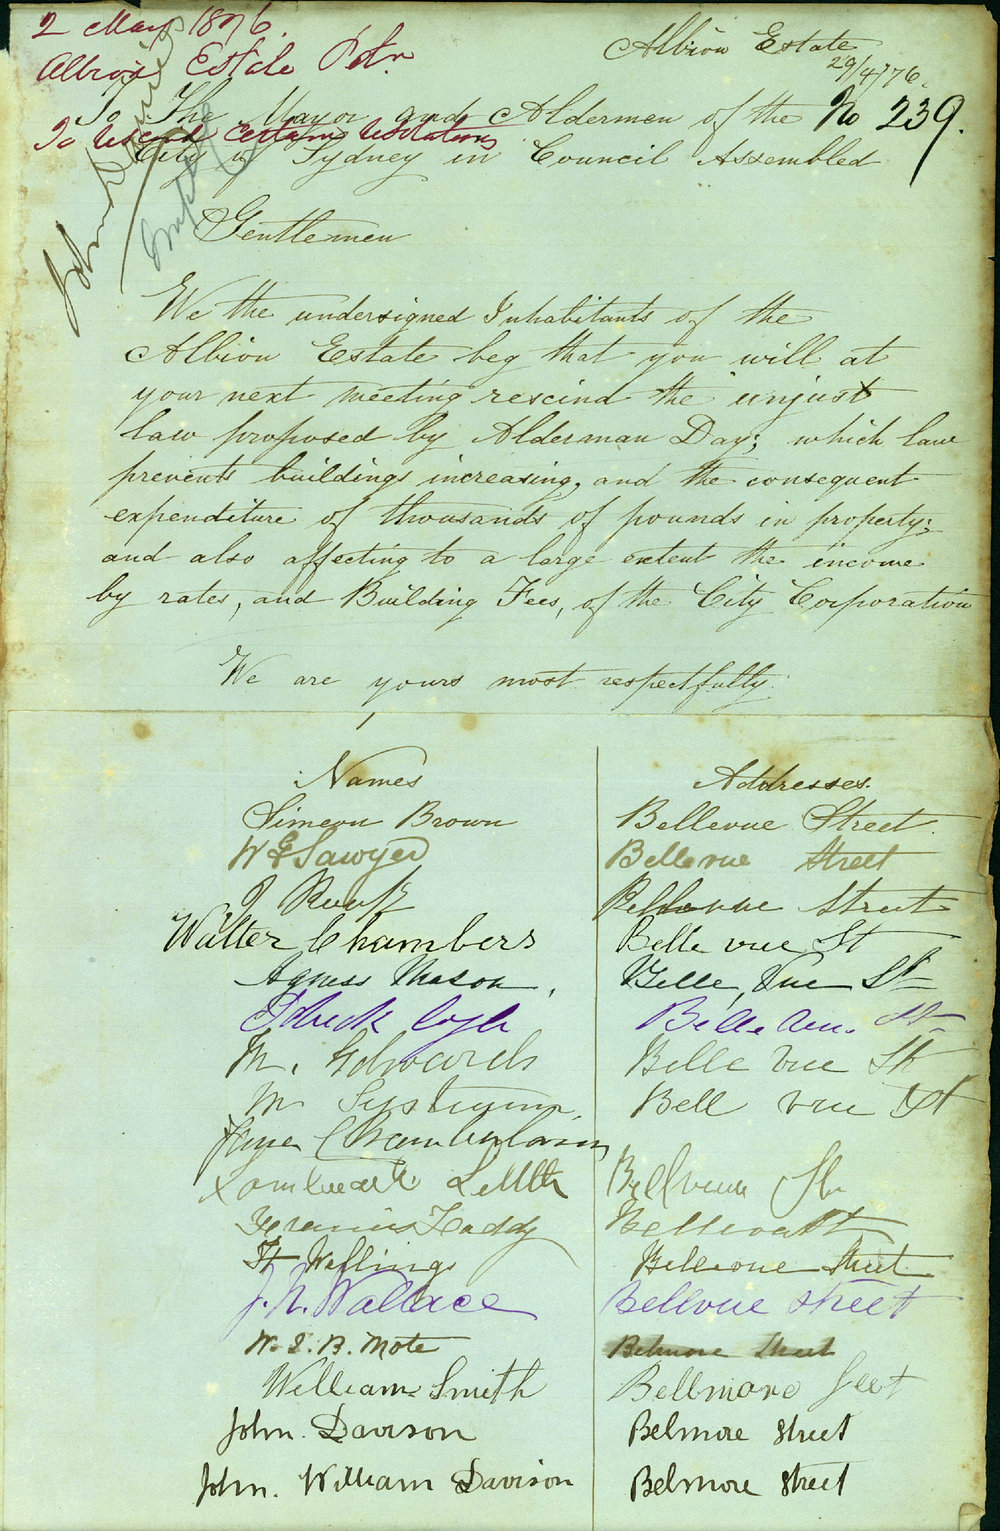 2 May 1876.
Albion Estate Petn
To rescind certain resolutions
Albion Estate
29/4/76.
No 239.
To The Mayor and Aldermen of the
City of Sydney in Council Assembled
Gentlemen
We the undersigned Inhabitants of the
Albion Estate beg that you will at
your next meeting rescind the unjust
law proposed by Alderman Day; which law
prevents buildings increasing, and the consequent
expenditure of thousands of pounds in property;
and also affecting to a large extent the income
by rates, and Building Fees, of the City Corporation
We are yours most respectfully
Names Addresses.
Simeon Brown Bellevue Street.
W G Sawyer Bellevue Street
J Bellevue Street
Walter Chambers Belle vue St
Agness Mason, Belle Vue St
Belle Vue. St
M. Edwards Belle vue St
M Bell vue St
Jane Chamberlain
Bellvue St
Bellevue St
Bellevue Street
J. N. Wallace Bellvue street
W. I. B. Mote Belmore Street
William Smith Bellmore Street
John. Davison Belmore Street
John. William Davison Belmore Street